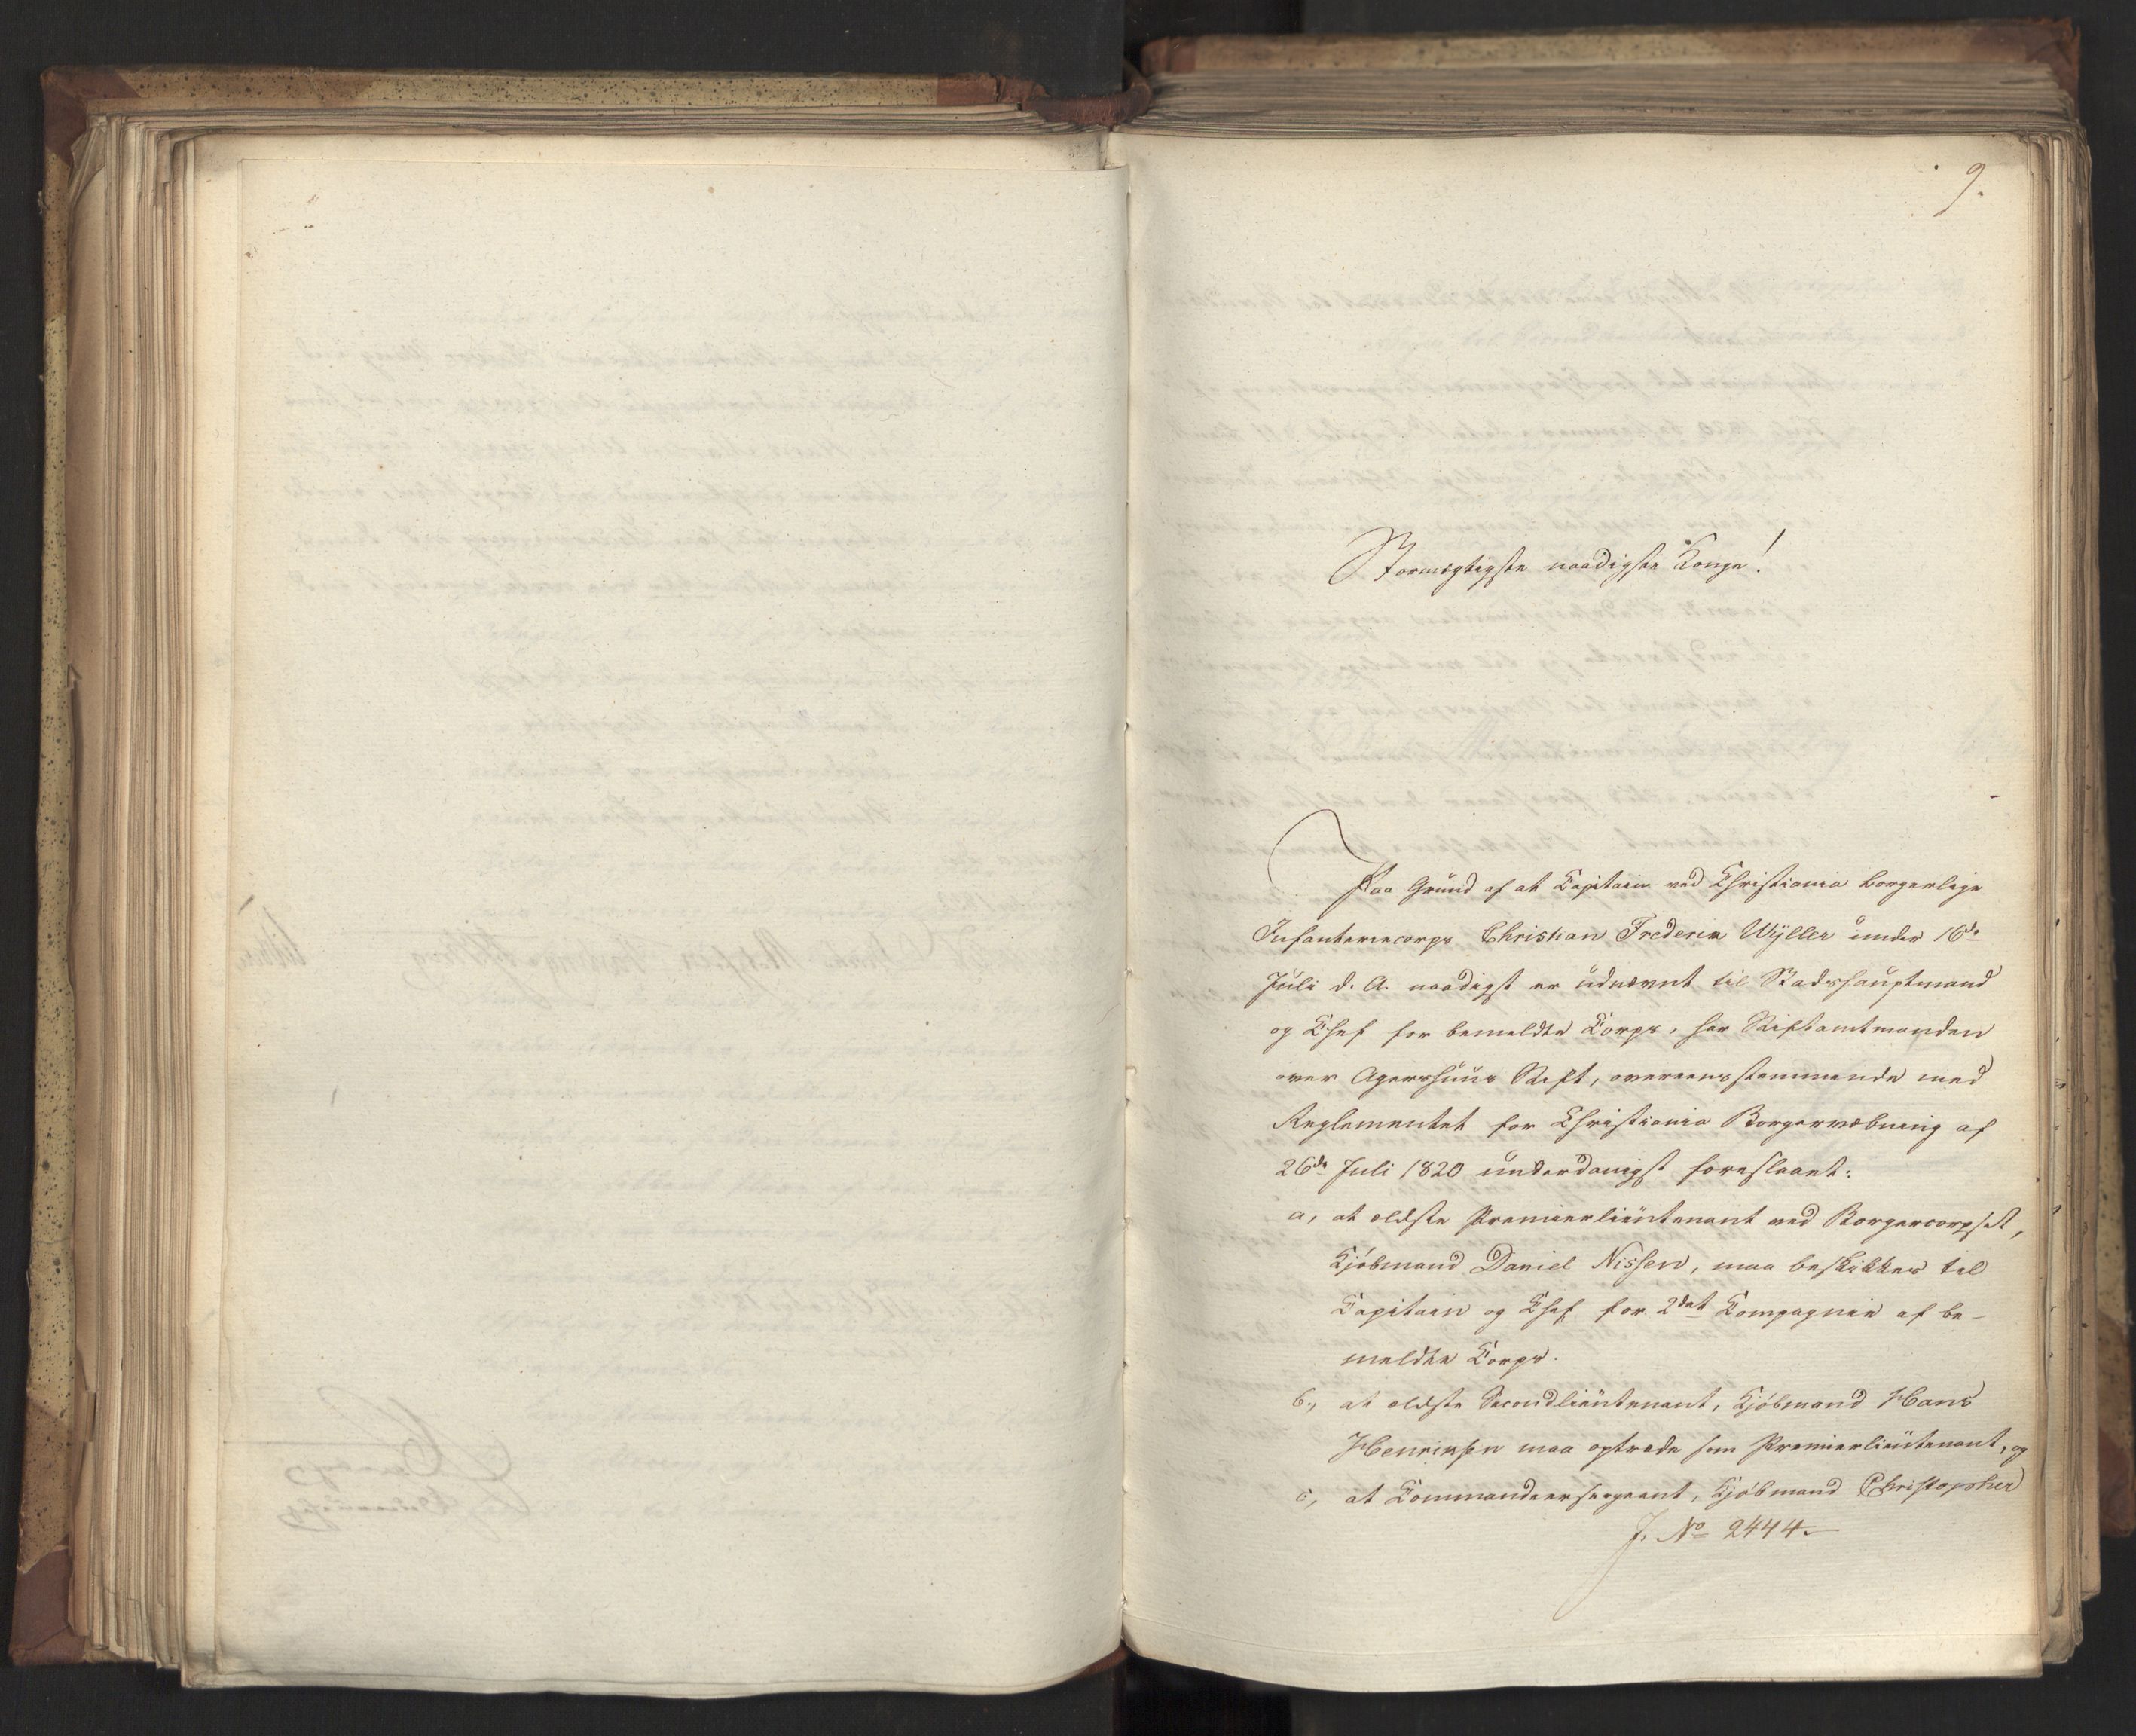 9.
Stormægtigste naadigste Konge!
Paa Grund af at Capitain ved Christiania borgerlige
Infanteriecorps Christian Frederik Wÿller under 16de
Juli d. A. naadigst er udnævnt til Stadshauptmand
og Chef for bemeldte Corps, har Stiftamtmanden
over Agershuus Stift, overeensstemmende med
Reglementet for Christiania Borgervæbning af
26de Juli 1820 underdanigst foreslaaet:
a, at ældste Premierlieutenant ved Borgercorpset,
Kjøbmand Daniel Nissen, maa beskikkes til
Capitain og Chef for 2det Compagnie af be-
meldte Corps.
b, at ældste Secondlieutenant, Kjøbmand Hans
Henriksen maa optræde som Premierlieutenant, og
c, at Commandeersergeant, Kjøbmand Christopher
J. No 2444.